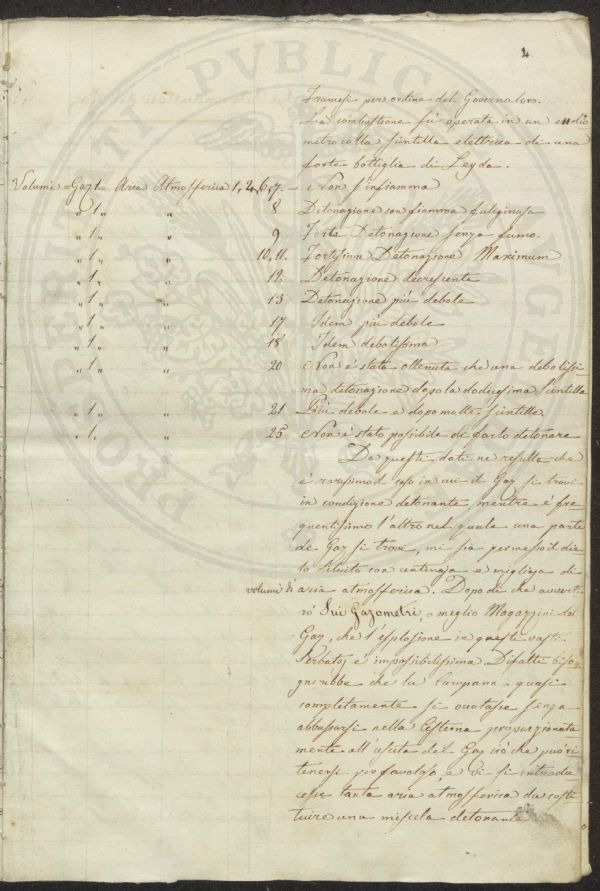 4
Framesi per ordine del Governo loro.
La combustione fù operata in un eudio
metro colla scintilla elettrica di una
forte bottiglia di Leyda.
Volumi = Gaz 1 = Aria Atmosferica 1, 2, 4, 6, 7. — Non s'infiamma
„ 1 „ „ 8 Detonazione con fiamma fuliginosa
„ 1 „ „ 9 Forte Detonazione senza fumo.
„ 1 „ „ 10, 11. Fortissima Detonazione Maximum
„ 1 „ „ 12 Detonazione decrescente
„ 1 „ „ 13 Detonazione più debole
„ 1 „ „ 17 Idem più debole
„ 1 „ „ 18 Idem debolissima
„ 1 „ „ 20 Non è stata ottenuta che una debolissi
ma detonazione dopo la dodicesima scintilla
„ 1 „ „ 21 Più debole e dopo molte scintille
„ 1 „ „ 25 Non è stato possibile di farlo detonare
Da questi dati ne resulta che
è rarissimo il caso in cui il Gaz si trovi
in condizione detonante mentre è fre
quentissimo l'altro nel quale una parte
di Gaz si trovi, mi sia permesso il dir
lo diluito con centinaja e migliaja di
volumi d'aria atmosferica. Dopo di che avverti
rò Sui Gazometri, o meglio Magazzini del
Gaz, che l'esplosione in questi vasti
Serbatoj è impossibilissima. Difatti biso
gnerebbe che la Campana quasi
completamente si vuotasse senza
abbassarsi nella Cisterna proporzionata
mente all'uscita del Gaz ciò che può ri
tenersi per favoloso, e vi si introdu
cesse tanta aria atmosferica da costi
tuire una miscela detonante
PROSPERITATI PVBLIC AVGE